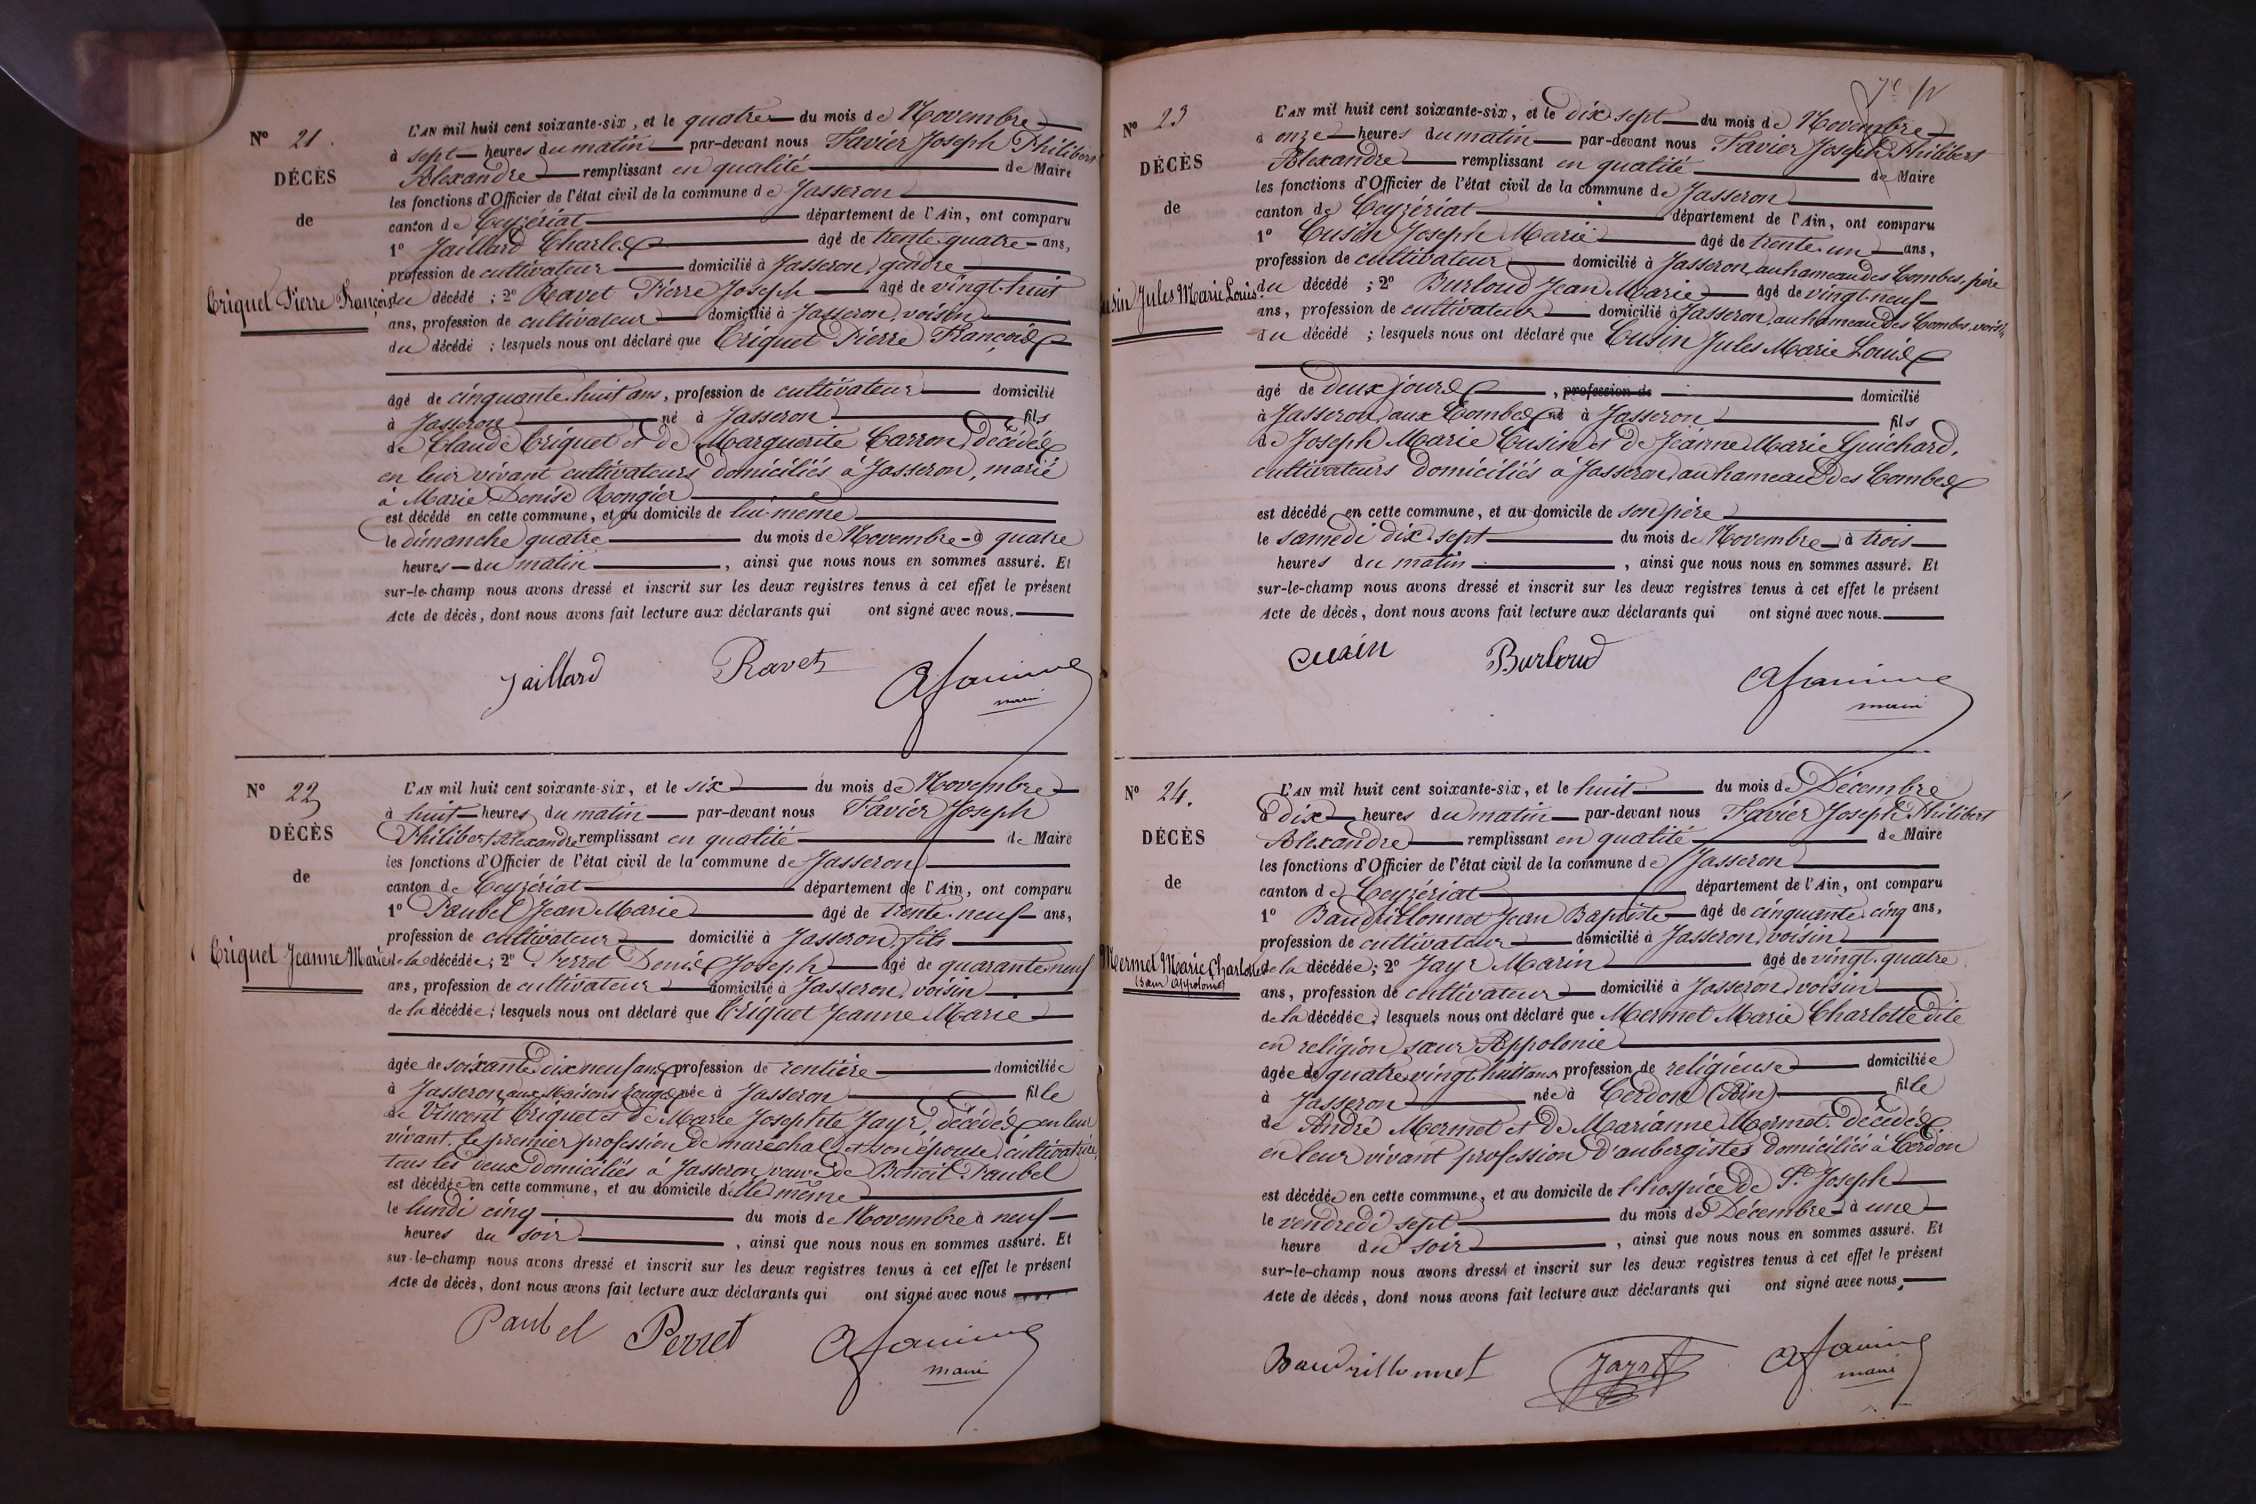 N° 21.
DÉCÈS
de
Criquet Pierre François
L'AN mil huit cent soixante-six, et le quatre du mois de Novembre
à sept heures du matin par-devant nous Favier Joseph Philibert
Alexandre remplissant en qualité de Maire
les fonctions d'Officier de l'état civil de la commune de Jasseron
canton de Ceyzériat département de l'Ain, ont comparu
1° Jaillard Charles âgé de trente quatre ans,
profession de cultivateur domicilié à Jasseron, gendre
du décédé ; 2° Ravet Pierre Joseph âgé de vingt-huit
ans, profession de cultivateur domicilié à Jasseron, voisin
du décédé ; lesquels nous ont déclaré que Criquet Pierre François
âgé de cinquante huit ans, profession de cultivateur domicilié
à Jasseron né à Jasseron fils
de Claude Criquet et de Marguerite Carron, décédés
en leur vivant cultivateurs domiciliés à Jasseron, marié
à Marie Denise Rongier
est décédé en cette commune, et au domicile de lui-même
le dimanche quatre du mois de Novembre à quatre
heures du matin, ainsi que nous nous en sommes assuré. Et
sur-le-champ nous avons dressé et inscrit sur les deux registres tenus à cet effet le présent
Acte de décès, dont nous avons fait lecture aux déclarants qui ont signé avec nous.
Jaillard Ravet
maire
N° 22
DÉCÈS
de
Criquet Jeanne Marie
L'AN mil huit cent soixante-six, et le six du mois de Novembre
à huit heures du matin par-devant nous Favier Joseph
Philibert Alexandre remplissant en qualité de Maire
les fonctions d'Officier de l'état civil de la commune de Jasseron
canton de Ceyzériat département de l'Ain, ont comparu
1° Paubel Jean Marie âgé de trente-neuf ans,
profession de cultivateur domicilié à Jasseron, fils
de la décédée ; 2° Perret Denis Joseph âgé de quarante neuf
ans, profession de cultivateur domicilié à Jasseron, voisin
de la décédée ; lesquels nous ont déclaré que Criquet Jeanne Marie
âgée de soixante dix neuf ans, profession de rentière domiciliée
à Jasseron, aux Maisons Rouges, née à Jasseron fille
de Vincent Criquet et de Marie Josephte Jayr, décédés en leur
vivant, le premier profession de maréchal et son épouse, cultivatrice,
tous les deux domiciliés à Jasseron, veuve de Benoît Paubel
est décédée en cette commune, et au domicile d'elle même
le lundi cinq du mois de Novembre à neuf
heures du soir, ainsi que nous nous en sommes assuré. Et
sur-le-champ nous avons dressé et inscrit sur les deux registres tenus à cet effet le présent
Acte de décès, dont nous avons fait lecture aux déclarants qui ont signé avec nous
Paubel Perret
maire
N° 23
DÉCÈS
de
Cusin Jules Marie Louis.
L'AN mil huit cent soixante-six, et le dix sept du mois de Novembre
à onze heures du matin par-devant nous Favier Joseph Philibert
Alexandre remplissant en qualité de Maire
les fonctions d'Officier de l'état civil de la commune de Jasseron
canton de Ceyzériat département de l'Ain, ont comparu
1° Cusin Joseph Marie âgé de trente-un ans,
profession de cultivateur domicilié à Jasseron, au hameau des Combes, père
du décédé ; 2° Burloud Jean Marie âgé de vingt-neuf
ans, profession de cultivateur domicilié à Jasseron, au hameau des Combes, voisin
du décédé ; lesquels nous ont déclaré que Cusin Jules Marie Louis
âgé de deux jours, profession de domicilié
à Jasseron, aux Combes, né à Jasseron fils
de Joseph Marie Cusin et de Jeanne Marie Guichard,
cultivateurs domiciliés à Jasseron, au hameau des Combes
est décédé en cette commune, et au domicile de son père
le samedi dix-sept du mois de Novembre à trois
heures du matin, ainsi que nous nous en sommes assuré. Et
sur-le-champ nous avons dressé et inscrit sur les deux registres tenus à cet effet le présent
Acte de décès, dont nous avons fait lecture aux déclarants qui ont signé avec nous.
Cusin Burloud
maire
N° 24.
DÉCÈS
de
Mermet Marie Charlotte
(sœur Appolonie)
L'AN mil huit cent soixante-six, et le huit du mois de Décembre
à dix heures du matin par-devant nous Favier Joseph Philibert
Alexandre remplissant en qualité de Maire
les fonctions d'Officier de l'état civil de la commune de Jasseron
canton de Ceyzériat département de l'Ain, ont comparu
1° Baudrillonnet Jean Baptiste âgé de cinquante-cinq ans,
profession de cultivateur domicilié à Jasseron, voisin
de la décédée ; 2° Jayr Marin âgé de vingt-quatre
ans, profession de cultivateur domicilié à Jasseron, voisin
de la décédée ; lesquels nous ont déclaré que Mermet Marie Charlotte dite
en religion, sœur Appolonie
âgée de quatre-vingt-huit ans profession de religieuse domiciliée
à Jasseron née à Cerdon (Ain) fille
de André Mermet et de Marianne Mermet, décédés
en leur vivant profession d'aubergistes domiciliés à Cerdon
est décédée en cette commune, et au domicile de l'hospice de St. Joseph
le vendredi sept du mois de Décembre à une
heure du soir, ainsi que nous nous en sommes assuré. Et
sur-le-champ nous avons dressé et inscrit sur les deux registres tenus à cet effet le présent
Acte de décès, dont nous avons fait lecture aux déclarants qui ont signé avec nous.
Baudrillonnet Jayr
maire